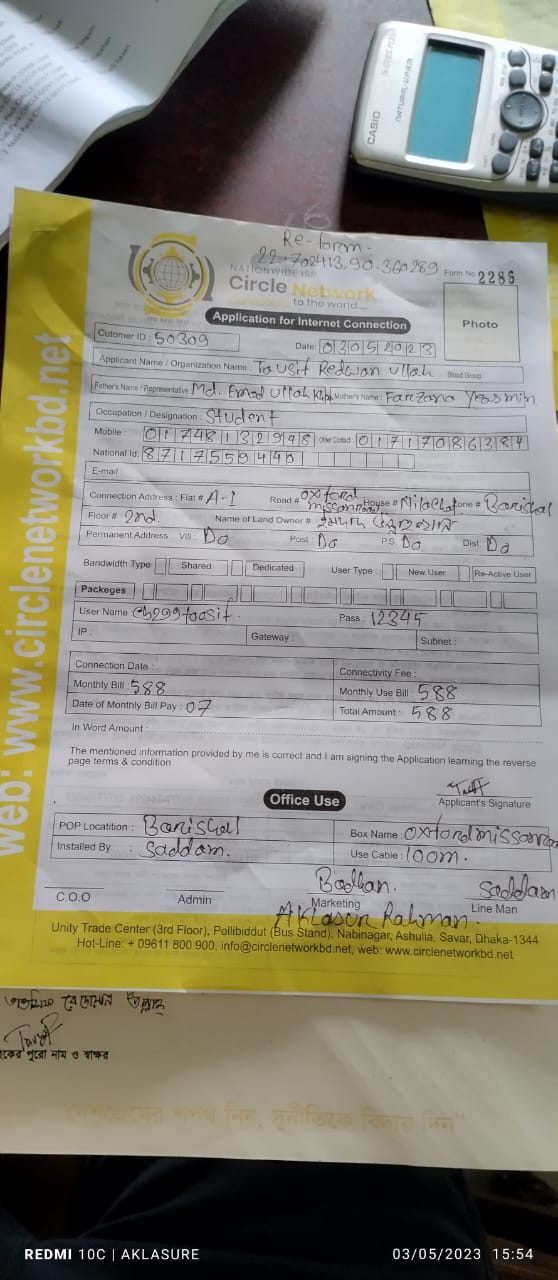 CASIO
NATURAL-V.P.A.M.
Re-form.
22.702413,90.360289
NATIONWIDE ISP
Circle Network
to the world....
Form No 2286
Application for Internet Connection
Photo
Cutomer ID : 50309
Date: 03052023
Applicant Name / Organization Name : Tausif Redwan Ullah Blood Group
Fathers Name / Representative Md. Emad Ullah Khan Mother's Name : Farzana Yeasmin
Occupation / Designation : Student
Mobile : 01748132948 Other Contact : 01717086384
National Id: 8717559440
E-mail
Connection Address : Flat # A-1 Road # Oxford missonroad House # Zone # Barishal
Floor # 2nd. Name of Land Owner #
Permanent Address Vill : Do Post : Do P.S: Do Dist: Do
Bandwidth Type Shared Dedicated User Type : New User Re-Active User
Packeges
User Name Pass : 12345
IP : Gateway : Subnet :
Connection Date : Connectivity Fee :
Monthly Bill : 588 Monthly Use Bill : 588
Date of Monthly Bill Pay : 07 Total Amount : 588
In Word Amount :
The mentioned information provided by me is correct and I am signing the Application learning the reverse
page terms & condition.
Applicant's Signature
Office Use
POP Locatition : Barishal Box Name : Oxfordmissonroad
Installed By : Saddam. Use Cable : 100m.
Bodhan. Saddam
C.O.O Admin Marketing Line Man
Aklasur Rahman.
Unity Trade Center (3rd Floor), Pollibiddut (Bus Stand), Nabinagar, Ashulia, Savar, Dhaka-1344
Hot-Line: + 09611 800 900, info@circlenetworkbd.net, web: www.circlenetworkbd.net
web: www.circlenetworkbd.net
হকের পুরো নাম ও স্বাক্ষর
REDMI 10C | AKLASURE 03/05/2023 15:54